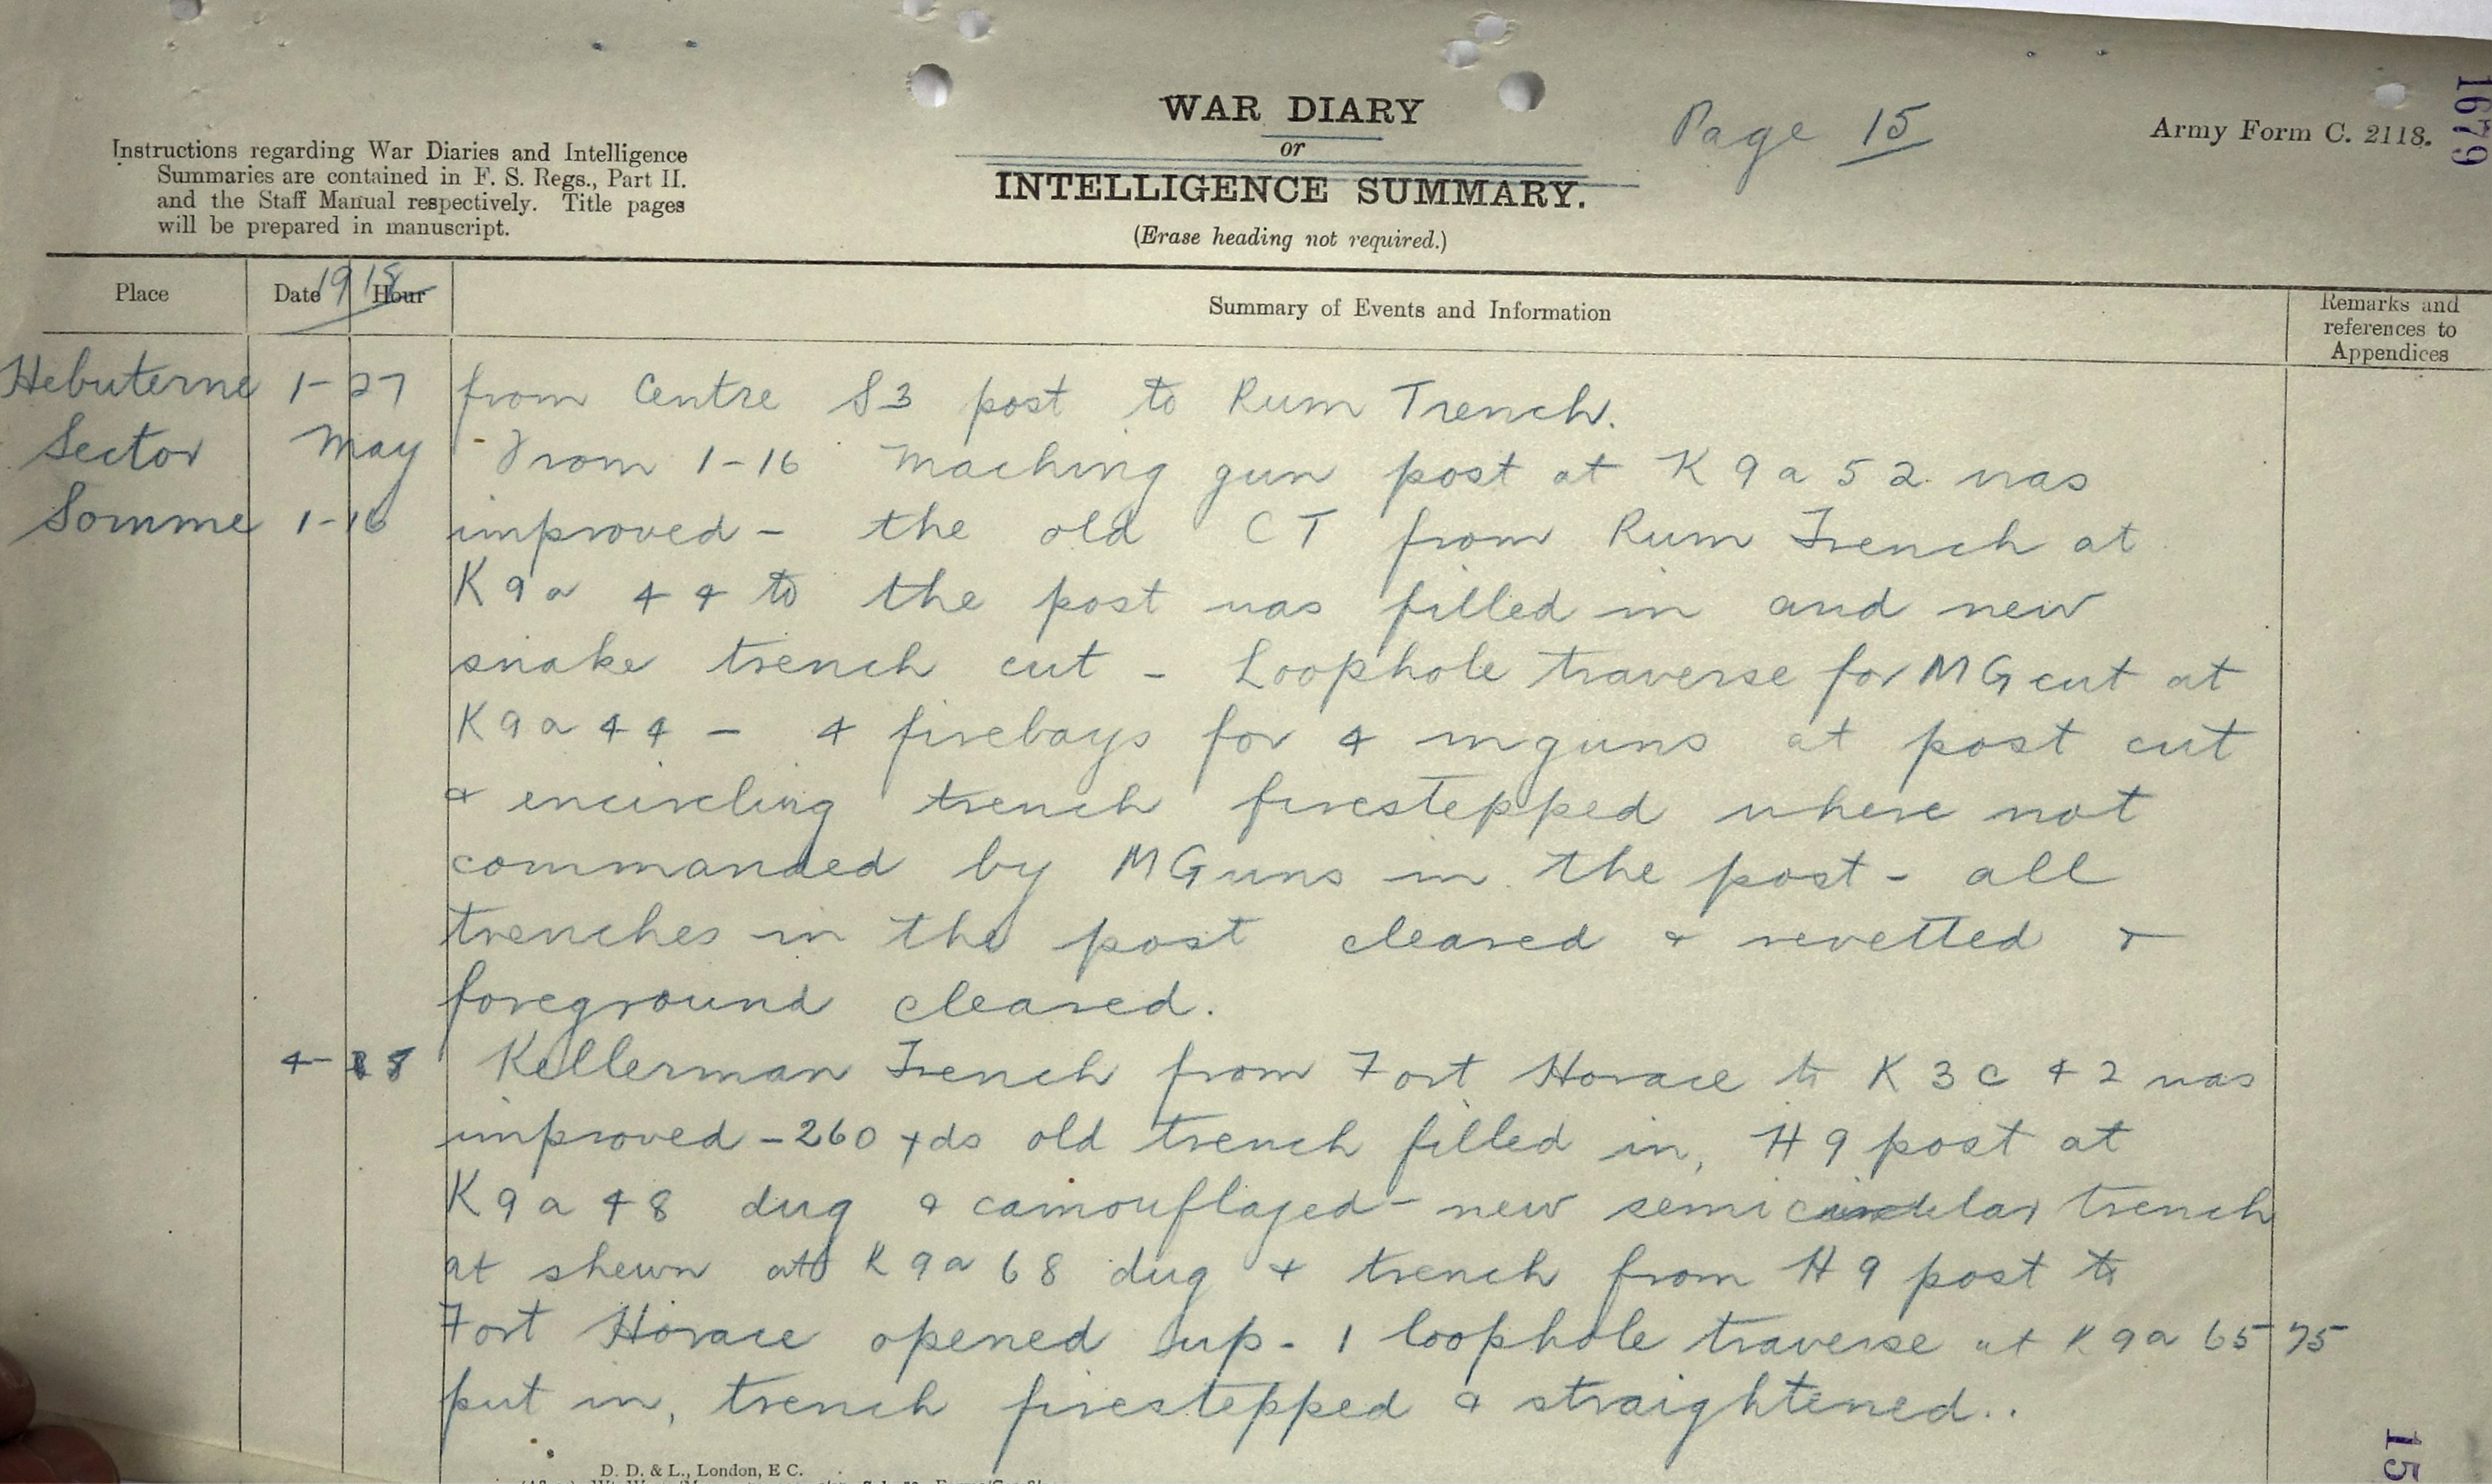 WAR DIARY
or
INTELLIGENCE SUMMARY.
(Erase heading not required.)
Page 15
Army Form C. 2118.
1679
Instructions regarding War Diaries and Intelligence
Summaries are contained in F. S. Regs., Part II.
and the Staff Manual respectively. Title pages
will be prepared in manuscript.
Place
Date Hour
1918
Summary of Events and Information
Remarks and
references to
Appendices
Hebuterne 1-27 from Centre S3 post to Rum Trench.
Sector May From 1-16 Maching gun post at K 9 a 5 2 was
Somme 1-16 improved - the old CT from Rum Trench at
K 9 a 4 4 to the post was filled in and new
snake trench cut - Loophole traverse for MG cut at
K 9 a 4 4 - 4 firebays for 4 mguns at post cut
& encircling trench firestepped where not
commanded by MGuns in the post - all
trenches in the post cleared & revetted &
foreground cleared.
4- Kellerman Trench from Fort Horace to K 3 c 4 2 was
improved - 260 yds old trench filled in, H 9 post at
K 9 a 4 8 dug & camouflaged - new semi trench
at shewn at K 9 a 6 8 dug & trench from H 9 post to
Fort Horace opened up - 1 loophole traverse at K 9 a 65 75
put in, trench firestepped & straightened..
D. D. & L., London, E C.
15